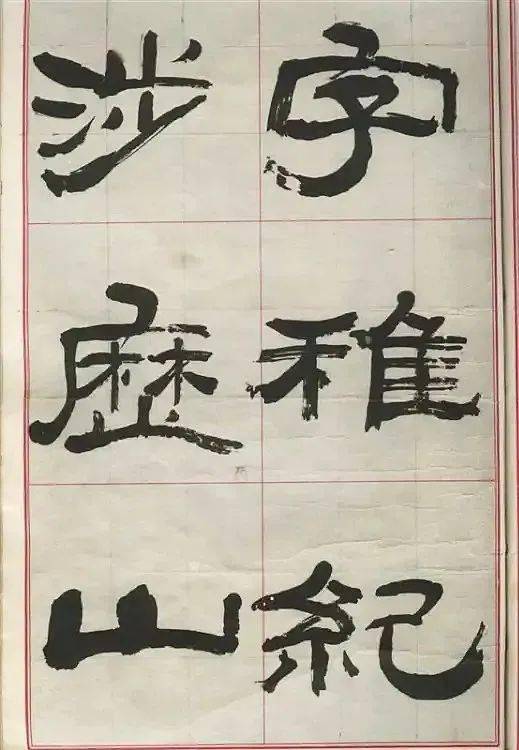 字稚紀
涉歷山